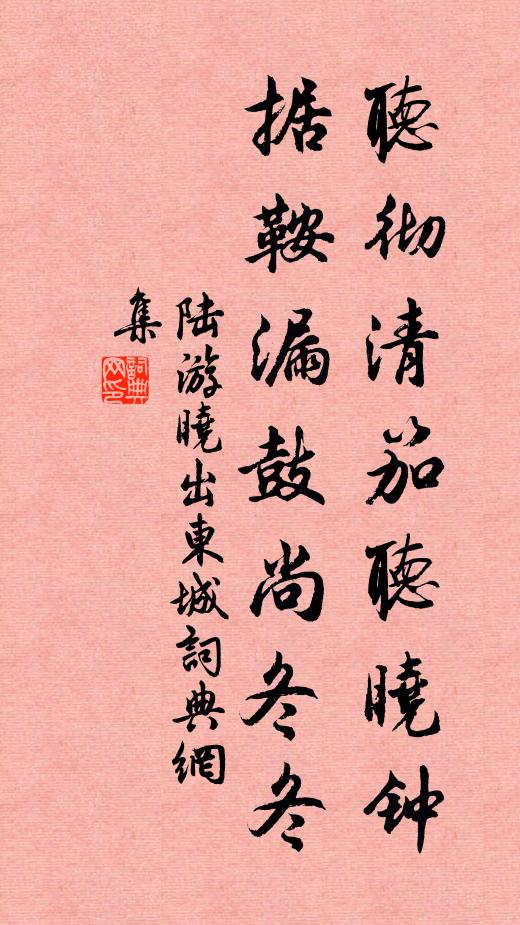 聽彻清笳聽曉钟
据鞍漏鼓尚冬冬
陆游曉出東城詞典網
集
詞典網印